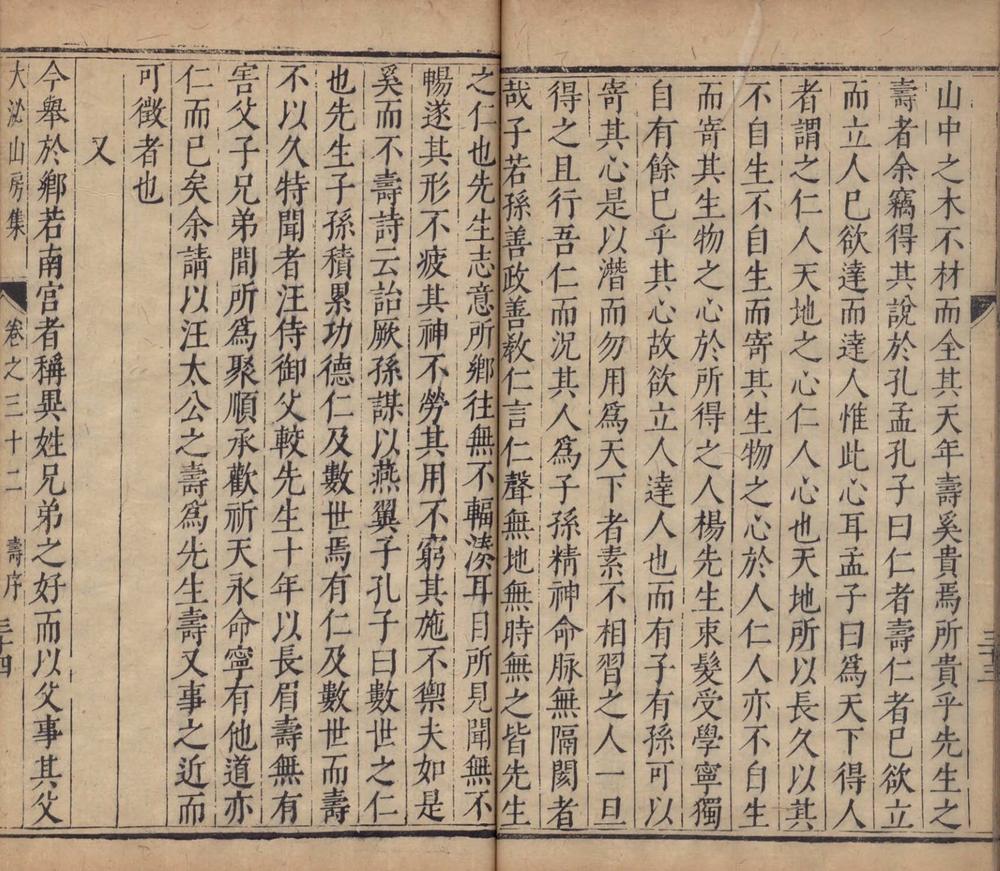 山中之木不材而全其天年壽奚貴焉所貴乎先生之
壽者余竊得其說於孔孟孔子曰仁者壽仁者已欲立
而立人已欲達而達人惟此心耳孟子曰爲天下得人
者謂之仁人天地之心仁人心也天地所以長久以其
不自生不自生而寄其生物之心於人仁人亦不自生
而寄其生物之心於所得之人楊先生束髮受學寧獨
自有餘巳乎其心故欲立人達人也而有子有孫可以
寄其心是以潛而勿用爲天下者素不相習之人一旦
得之且行吾仁而況其人爲子孫精神命脉無隔閡者
哉子若孫善政善敎仁言仁聲無地無時無之皆先生
之仁也先生志意所鄉往無不輻湊耳目所見聞無不
暢遂其形不疲其神不勞其用不窮其施不禦夫如是
奚而不壽詩云詒厥孫謀以燕翼子孔子曰數世之仁
也先生子孫積累功德仁及數世焉有仁及數世而壽
不以久特聞者汪侍御父較先生十年以長眉壽無有
害父子兄弟間所爲聚順承歡祈天永命寧有他道亦
仁而已矣余請以汪太公之壽爲先生壽又事之近而
可徵者也
又
今舉於鄉若南宫者稱異姓兄弟之好而以父事其父
大泌山房集 卷之三十二 壽序 三十四
三十三